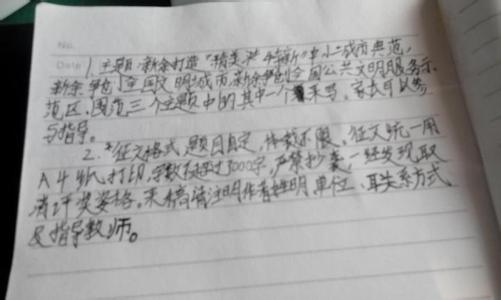 No.
Date 1. 主题:新余打造"精美洋特新"中小城市典范,
新余争创全国文明城市、新余争创全国公共文明服务示
范区,围范三个主题中的其中一个来写,家长可以参
与指导。
2. *征文格式 题目自定,体裁不限,征文统一用
A4纸打印,字数不超过3000字,严禁抄袭一经发现取
消评奖资格。来稿请注明作者姓明、单位、联系方式、
及指导教师。